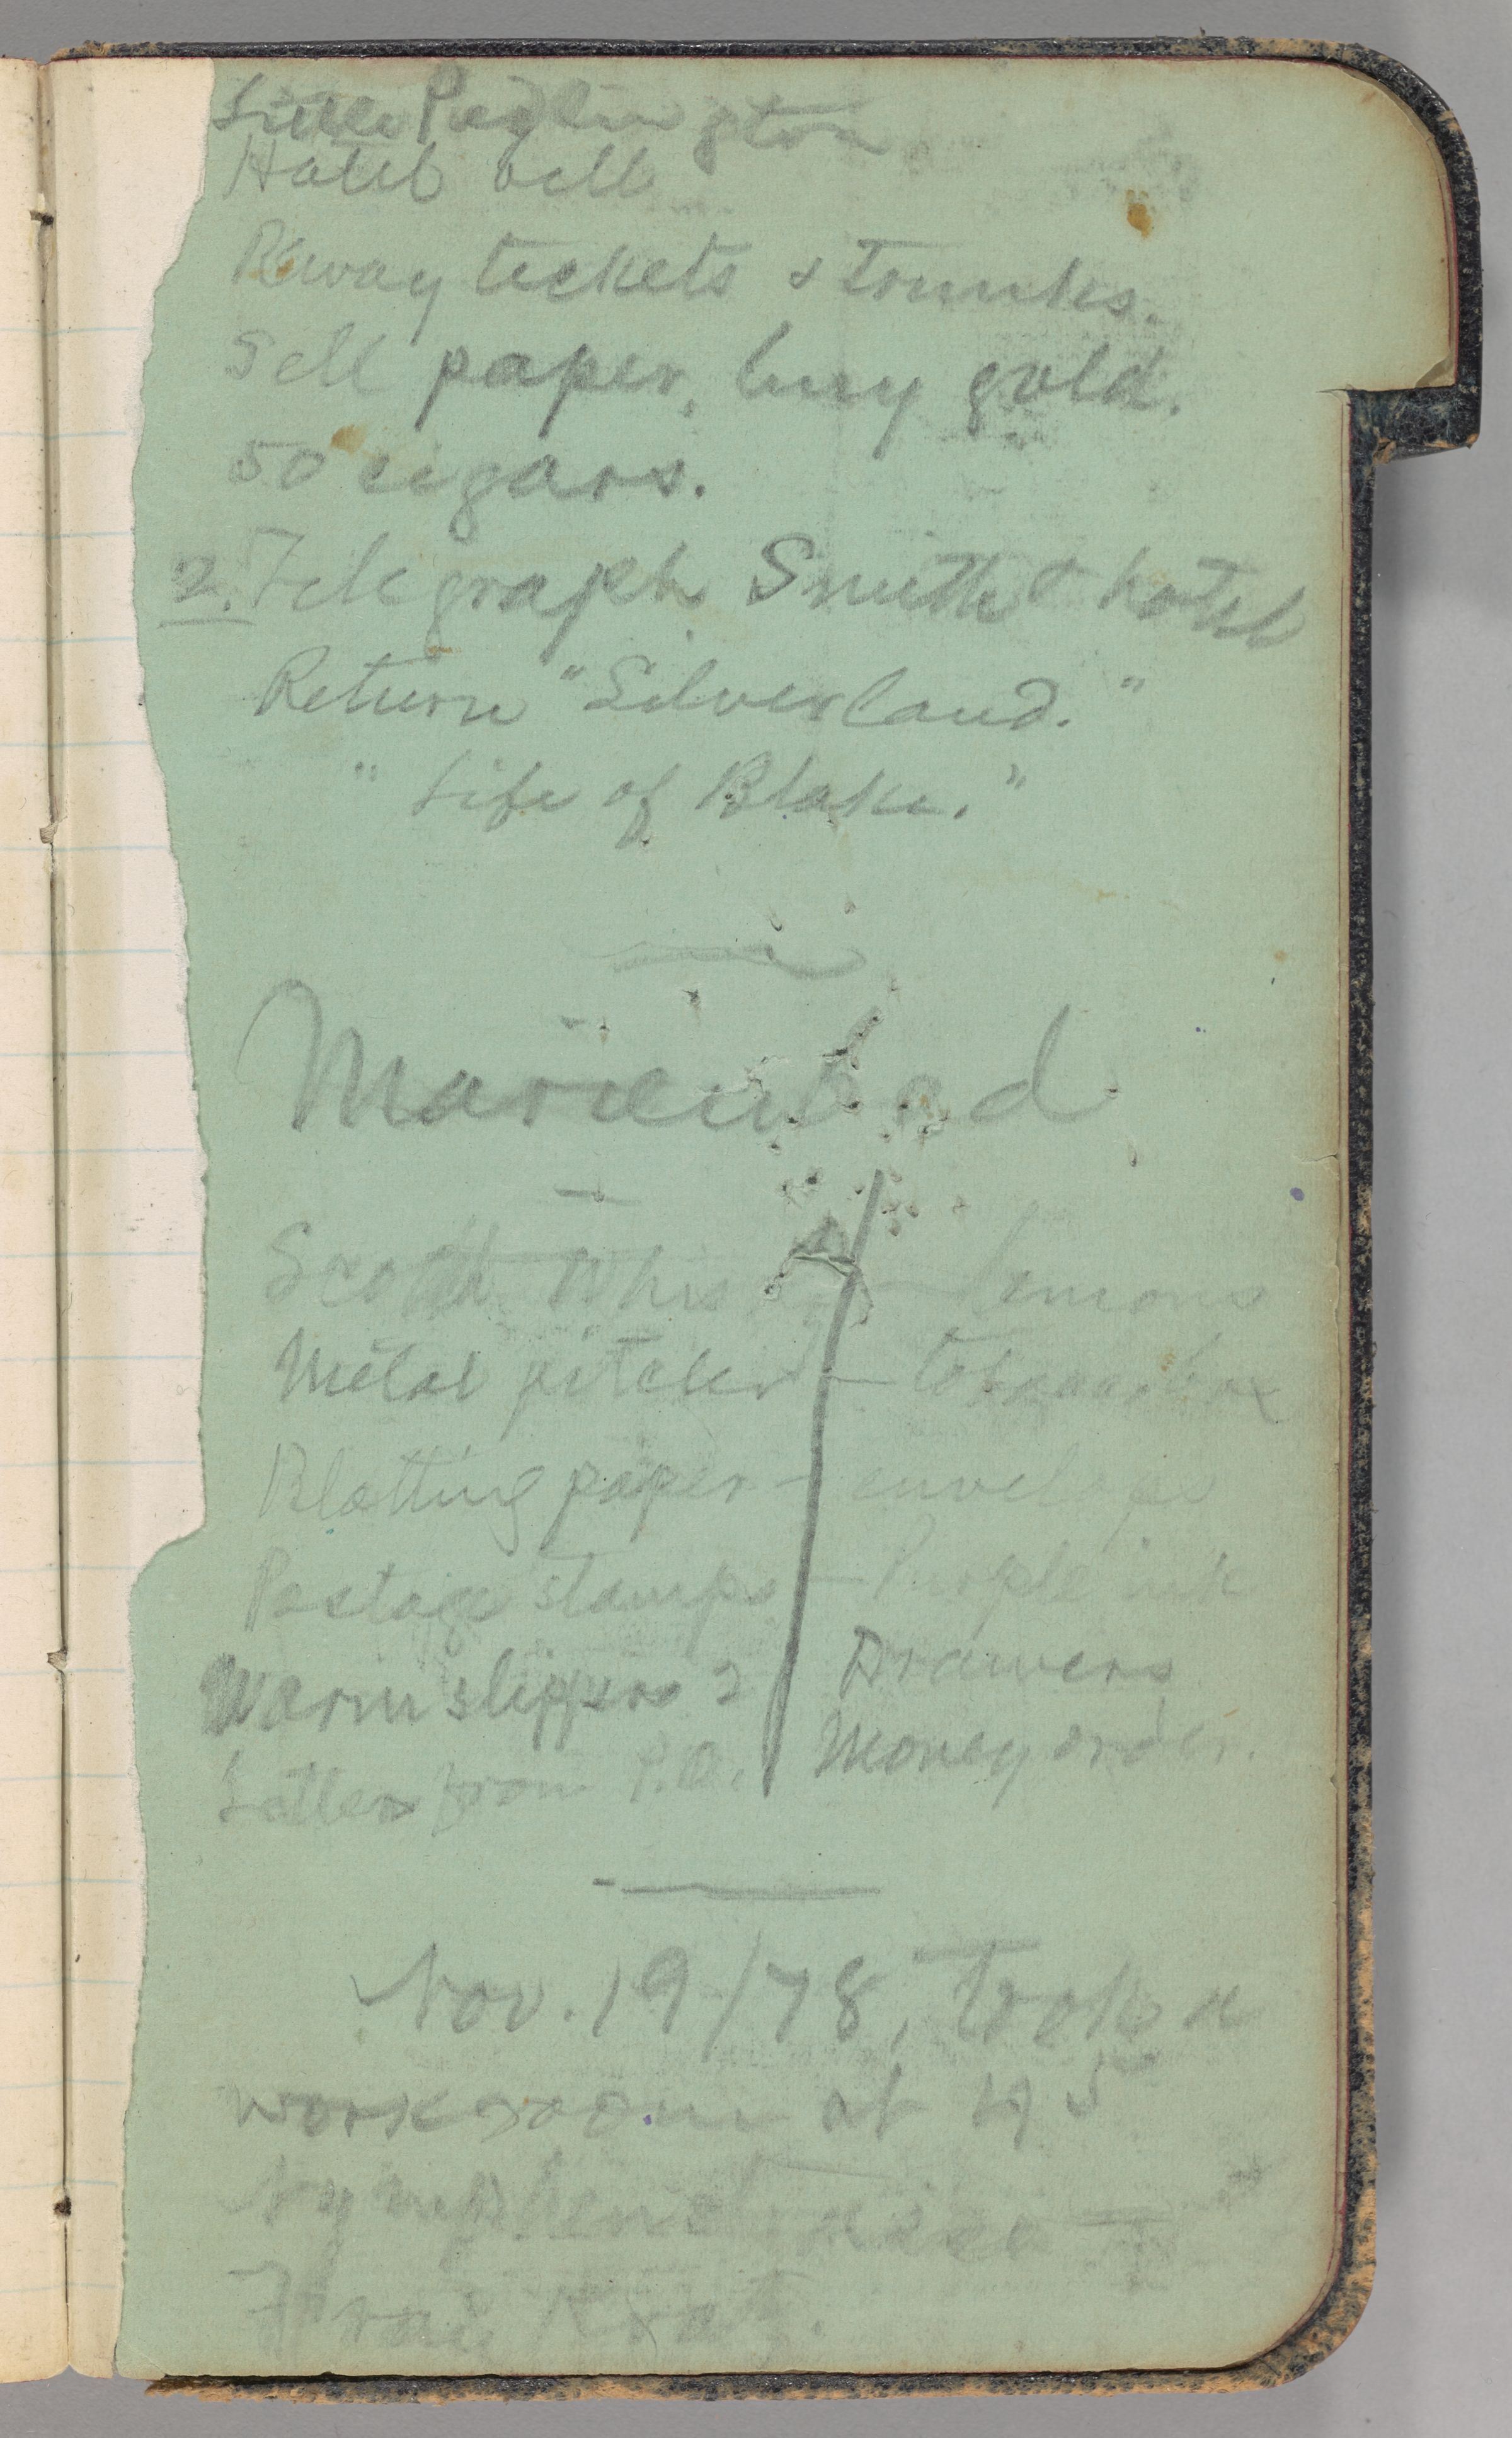 Little Pedlington
Hotel bill
R'way tickets & trunks.
Sell paper, buy gold.
50 cigars.
2. Telegraph Smith & hotel
Return "Silverland."
" Life of Blake."
Marienbad
Scotch Whis — lemons
Metal pitcher — tobacco box
Blotting paper — envelopes
Postage stamps — Purple ink
Warm slippers 2 Drawers
Letters from P.O. Money order.
Nov. 19/78, took a
workroom at 45
Nymphenstrasse —
Frau Kratz.